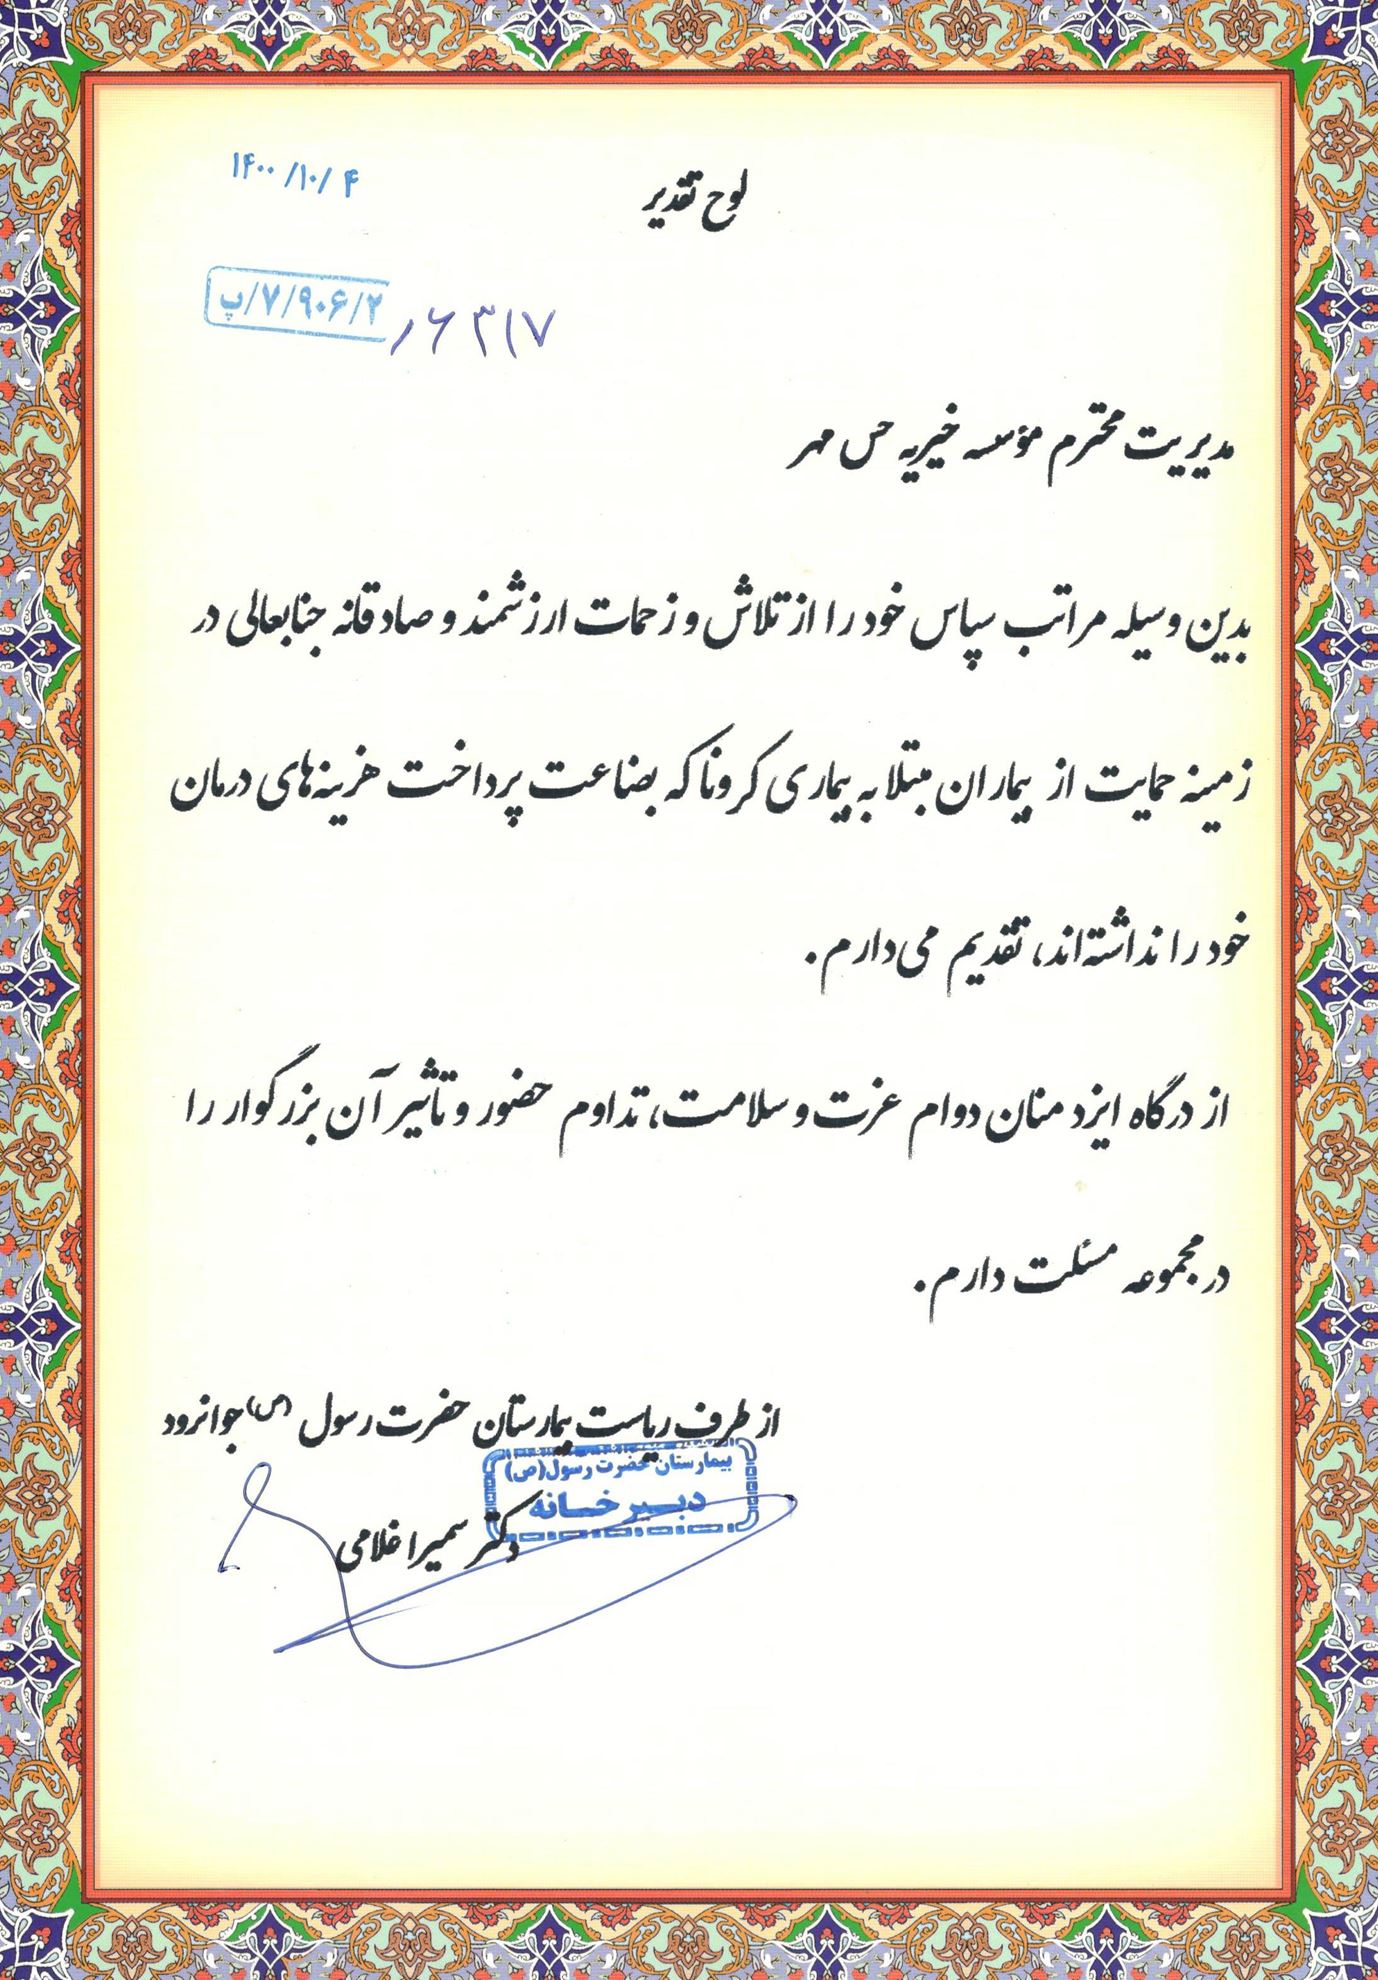 ۱۴۰۰/۱۰/۴
لوح تقدیر
پ/۷/۹۰۶/۲/۶۳۱۷
مدیریت محترم مؤسسه خیریه حس مهر
بدین وسیله مراتب سپاس خود را از تلاش و زحمات ارزشمند و صادقانه جنابعالی در
زمینه حمایت از بیماران مبتلا به بیماری کرونا که بضاعت پرداخت هزینه‌های درمان
خود را نداشته‌اند، تقدیم می‌دارم.
از درگاه ایزد منان دوام عزت و سلامت، تداوم حضور و تأثیر آن بزرگوار را
در مجموعه مسئلت دارم.
از طرف ریاست بیمارستان حضرت رسول (ص) جوانرود
بیمارستان حضرت رسول (ص)
دبیرخانه
دکتر سمیرا غلامی